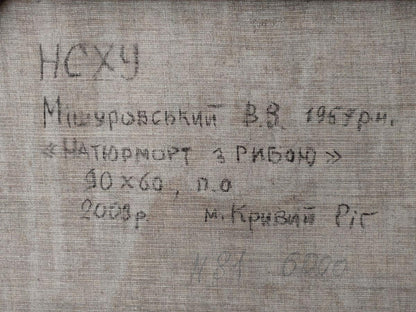 НСХУ
Мішуровський В.В. 1957р.н.
«НАТЮРМОРТ З РИБОЮ»
90х60, п.о
2009р. м. Кривий Ріг
№84 6200